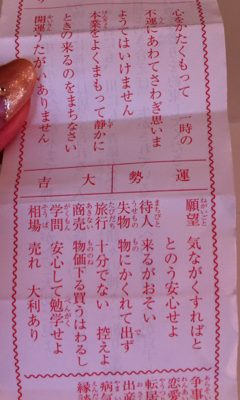 心をかたくもって 一時の
不運にあわてさわぎ思いま
ようてはいけません
本業をよくまもって静かに
ときの来るのをまちなさい
開運うたがいありません
運勢 大吉
願望 気ながくすればと
とのう安心せよ
待人 来るがおそい
失物 物にかくれて出ず
旅行 十分でない 控えよ
商売 物価下る買うはわるし
学問 安心して勉学せよ
相場 売れ 大利あり
争事
恋愛
転居
出産
病気